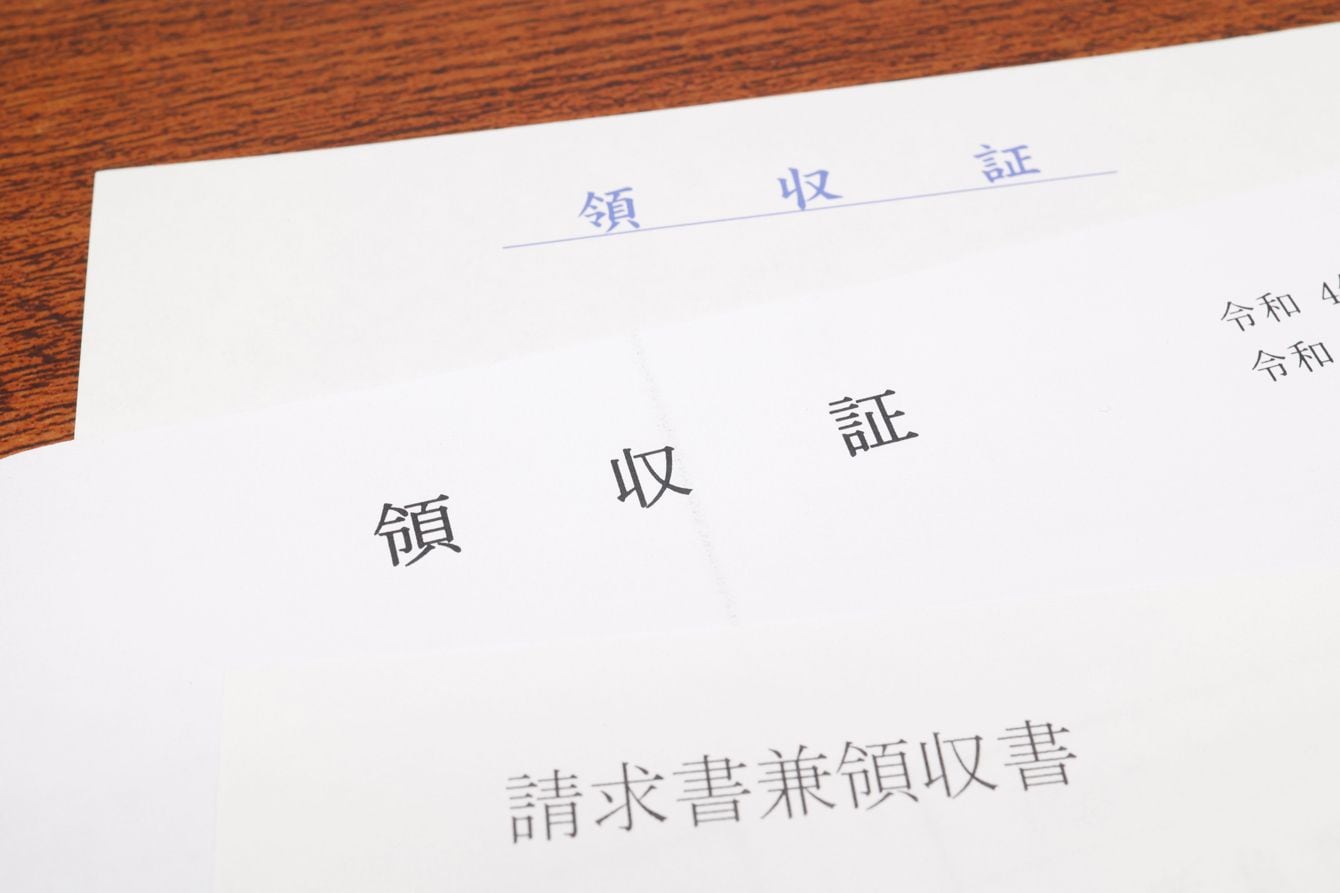 領収証
領収証
令和 4
令和
請求書兼領収書